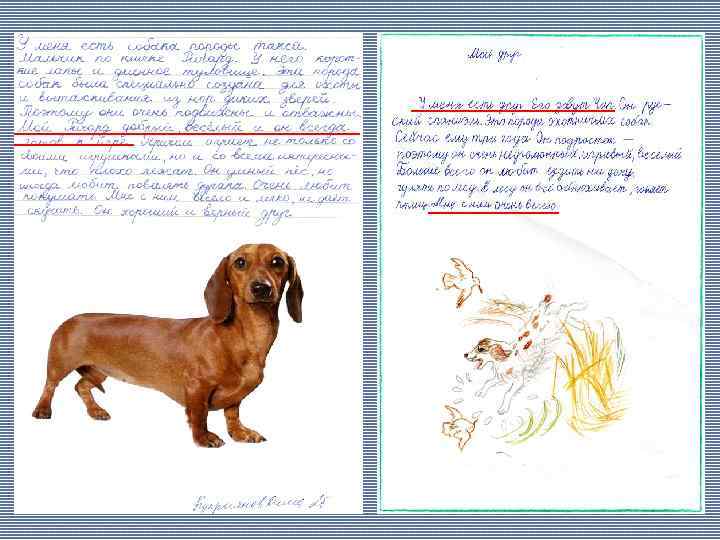 У меня есть собака породы такса.
Мальчик по кличке Ричард. У него корот-
кие лапы и длинное туловище. Эта порода
собак была специально создана для охоты
и вытаскивания из нор диких зверей.
Поэтому они очень подвижны и отважны.
Мой Ричард добрый, весёлый и он всегда
готов к игре. Причём играет не только со
своими игрушками, но и со всеми интересны-
ми, что плохо лежат. Он умный пёс, но
иногда любит повалять дурака. Очень любит
покушать. Мне с ним весело и легко, не даёт
скучать. Он хороший и верный друг.
Мой друг
У меня есть друг. Его зовут Чак. Он рус-
ский спаниэль. Эта порода охотничьих собак
Сейчас ему три года. Он подросток —
поэтому он очень неугомонный, игривый, веселый
Больше всего он любит ездить на дачу,
гулять по лесу. В лесу он всё обнюхивает, гоняет
птиц. Мне с ним очень весело.